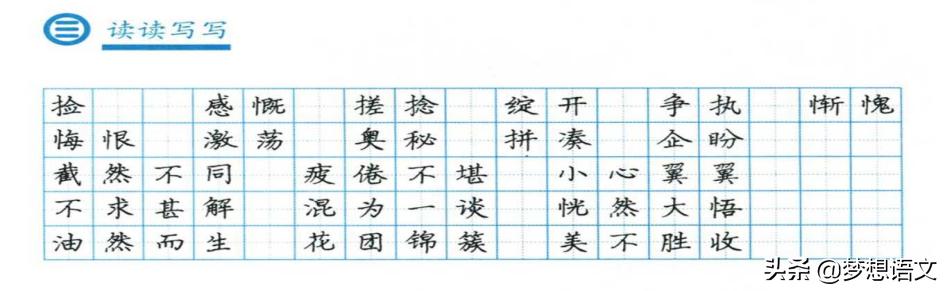 三 读读写写
捡 感慨 搓捻 绽开 争执 惭愧
悔恨 激荡 奥秘 拼凑 企盼
截然不同 疲倦不堪 小心翼翼
不求甚解 混为一谈 恍然大悟
油然而生 花团锦簇 美不胜收
头条 @梦想语文